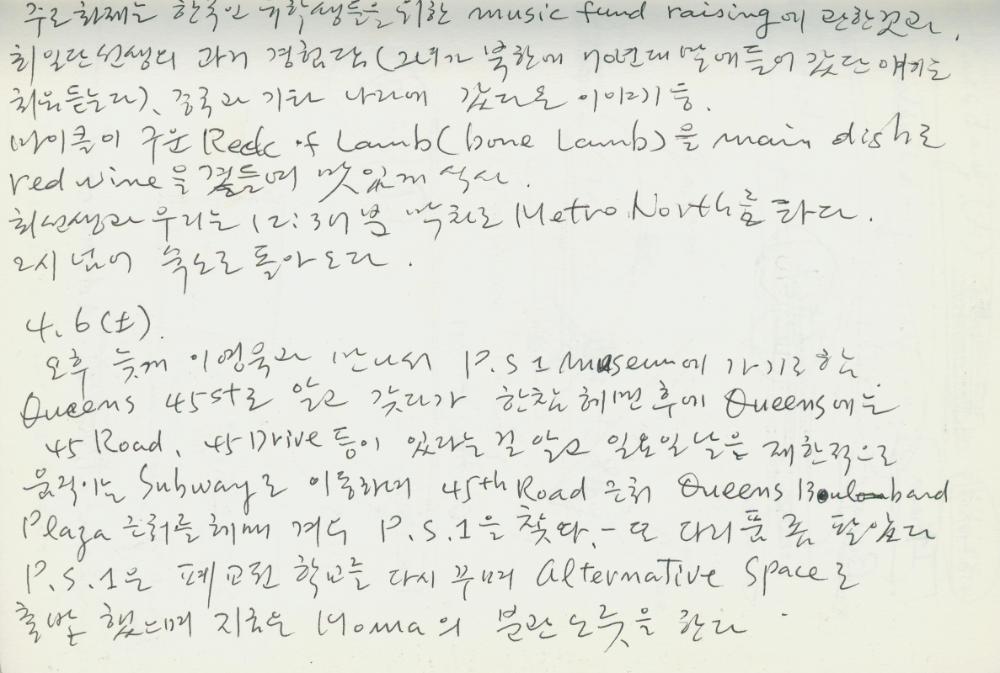 주로 화제는 한국인 유학생들을 위한 music fund raising에 관한것과,
최일단 선생의 과거 경험담 (그녀가 북한에 70년대 말에 들어 갔단 얘기는
처음 듣는다), 중국과 기타 나라에 갔다온 이야기 등.
마이클이 구운 Reck of Lamb (bone Lamb)을 main dish로
red wine을 곁들여 맛있게 식사.
최선생과 우리는 12:37분 막차로 Metro North를 타다.
2시 넘어 숙소로 돌아오다.
4. 6 (土).
오후 늦게 이영욱과 만나서 P.S 1 Museum에 가기로 함.
Queens 45st로 알고 갔다가 한참 헤맨 후에 Queens에는
45 Road, 45 Drive 등이 있다는 걸 알고 일요일날은 제한적으로
움직이는 Subway로 이동하며 45th Road 근처 Queens
Plaza 근처를 헤매 겨우 P.S.1을 찾다. - 또 다리품 좀 팔았다
P.S.1은 폐교된 학교를 다시 꾸며 alternative Space로
출발 했으며 지금은 Moma의 분관 노릇을 한다.